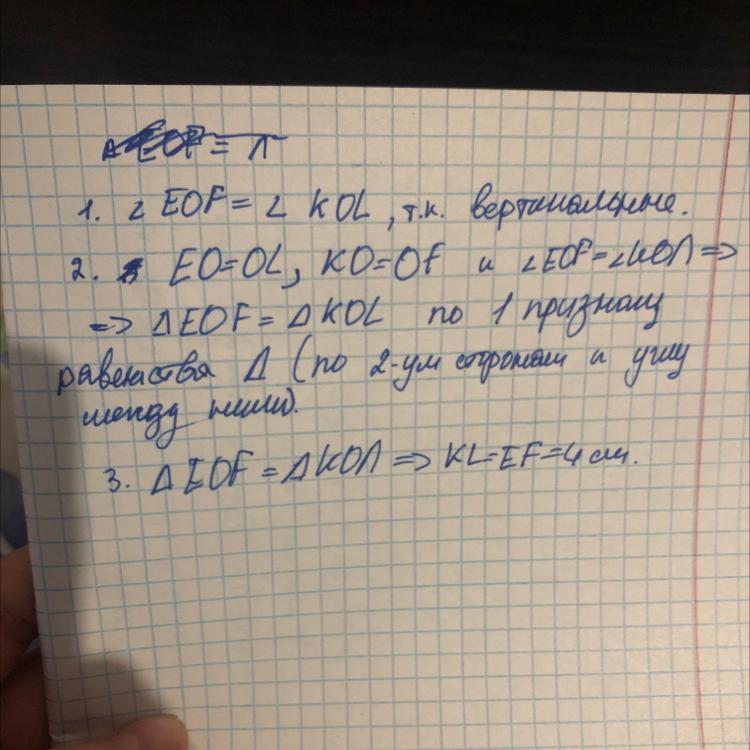 1. ∠EOF = ∠KOL, т.к. вертикальные.
2. EO=OL, KO=OF и ∠EOF=∠KOЛ =>
=> ΔEOF = ΔKOL по 1 признаку
равенства Δ (по 2-ум сторонам и углу
между ними).
3. ΔEOF = ΔKOЛ => KL=EF=4см.